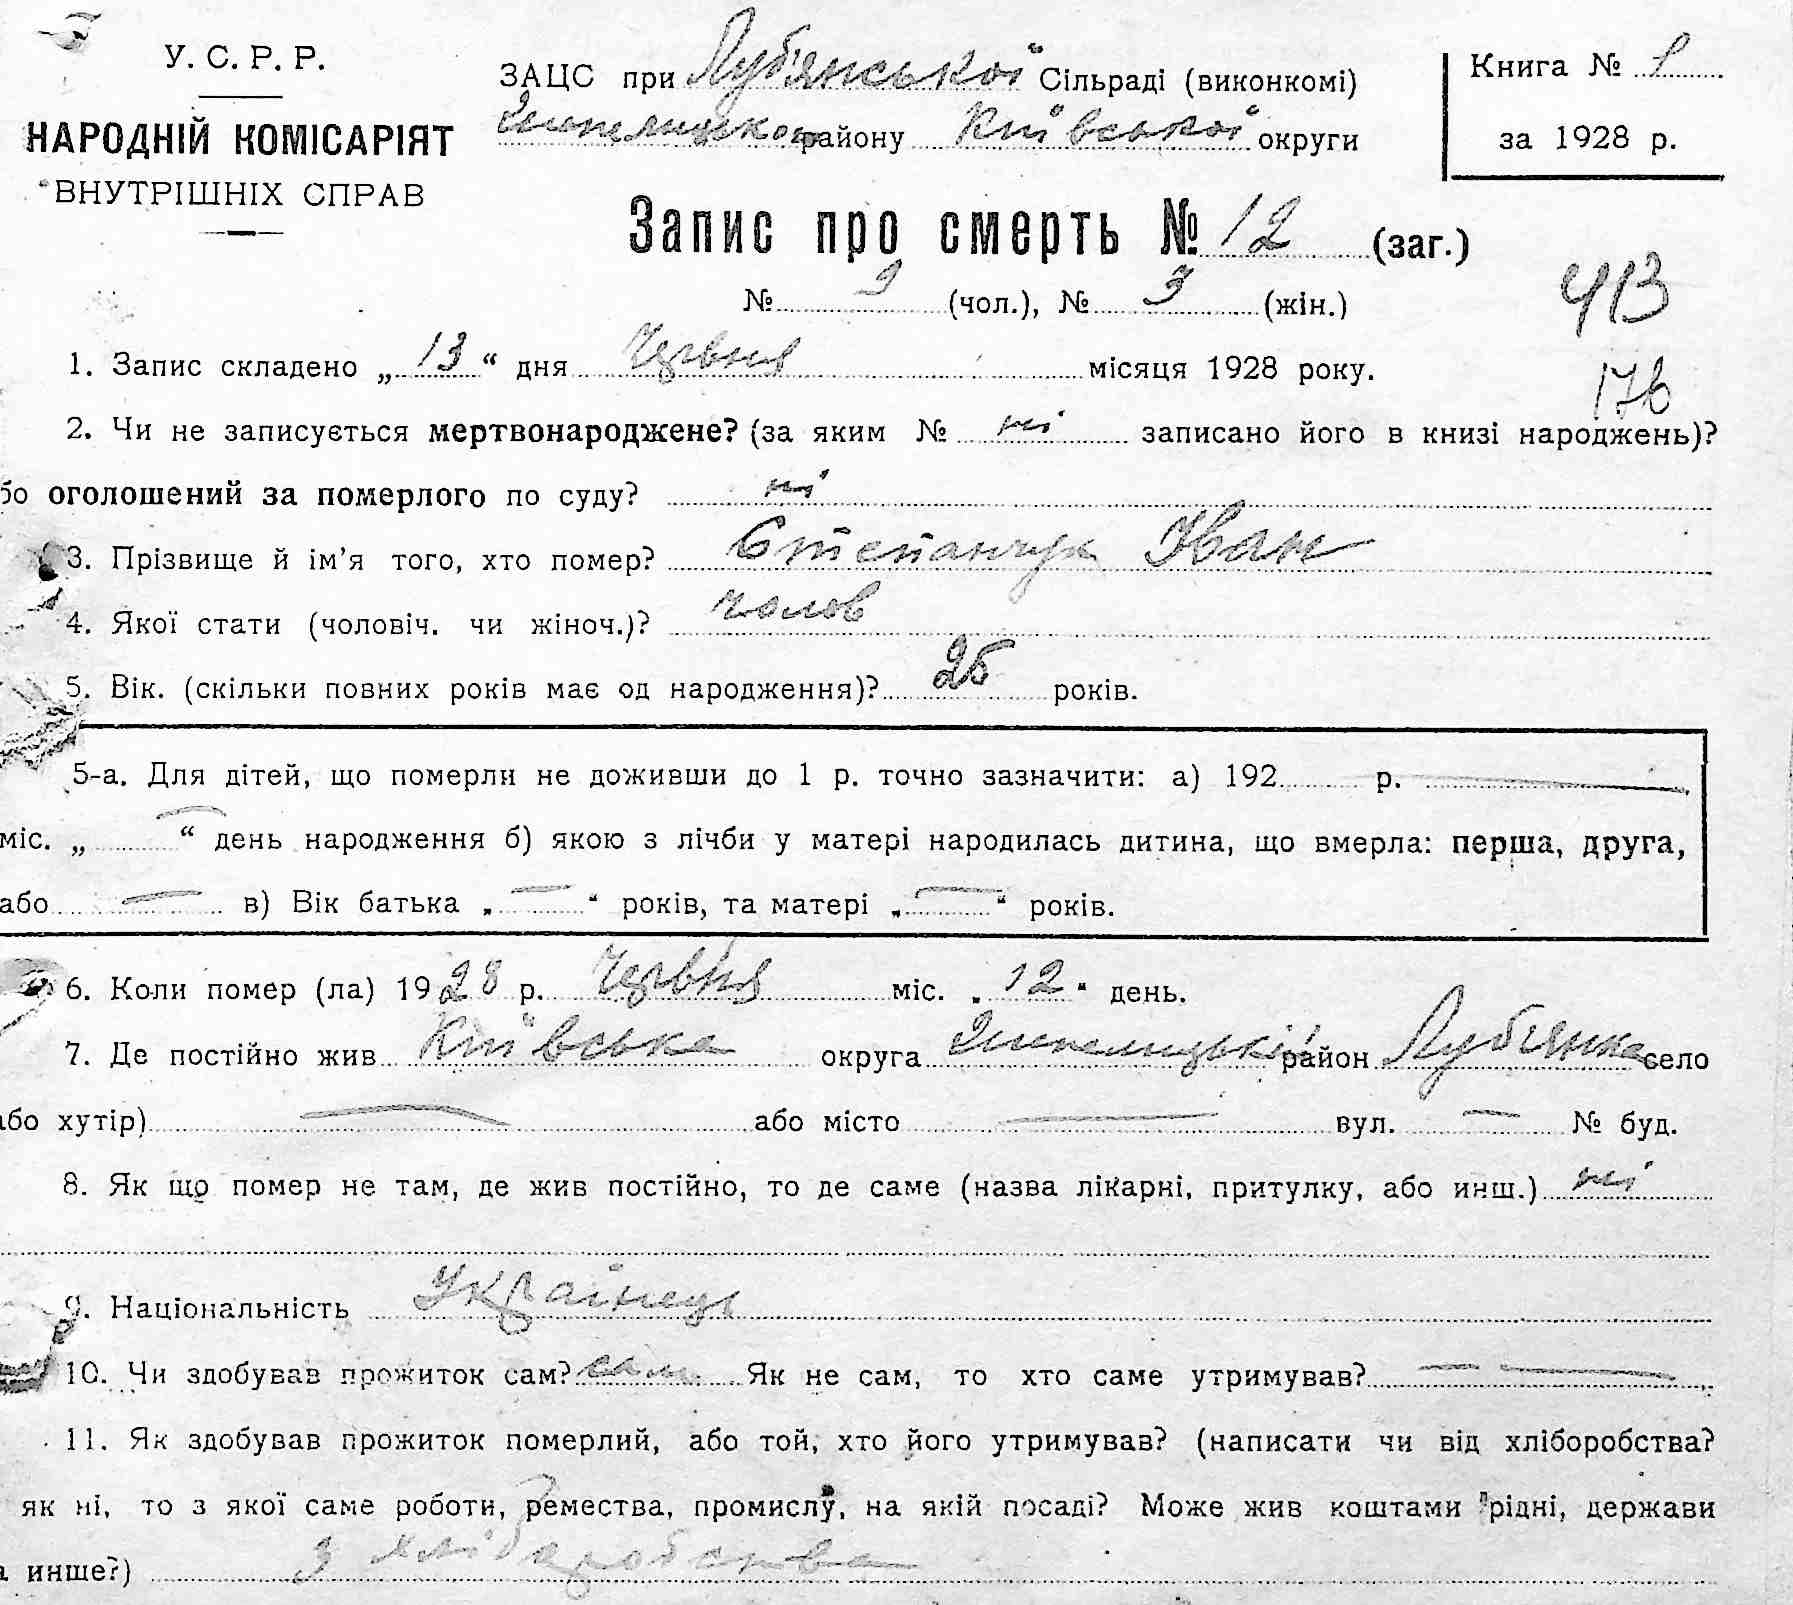 У. С. Р. Р.
НАРОДНІЙ КОМІСАРІЯТ
ВНУТРІШНІХ СПРАВ
ЗАЦС при Луб'янської Сільраді (виконкомі)
району Київської округи
Книга № 1
за 1928 р.
Запис про смерть № 12 (заг.)
№ 9 (чол.), № 3 (жін.)
413
176
1. Запис складено „ 13 “ дня Червня місяця 1928 року.
2. Чи не записується мертвонароджене? (за яким № ні записано його в книзі народжень)?
бо оголошений за померлого по суду? ні
3. Прізвище й ім'я того, хто помер? Степанчук Іван
4. Якої стати (чоловіч. чи жіноч.)? чолов
5. Вік. (скільки повних років має од народження)? 25 років.
5-а. Для дітей, що померли не доживши до 1 р. точно зазначити: а) 192 р. —
міс. „ — “ день народження б) якою з лічби у матері народилась дитина, що вмерла: перша, друга,
або — в) Вік батька „ — “ років, та матері „ — “ років.
6. Коли помер (ла) 1928 р. Червня міс. „ 12 “ день.
7. Де постійно жив Київська округа район Луб'янка село
або хутір) — або місто — вул. — № буд.
8. Як що помер не там, де жив постійно, то де саме (назва лікарні, притулку, або инш.) ні
9. Національність Українець
10. Чи здобував прожиток сам? сам Як не сам, то хто саме утримував? — —
11. Як здобував прожиток померлий, або той, хто його утримував? (написати чи від хліборобства?
як ні, то з якої саме роботи, ремества, промислу, на якій посаді? Може жив коштами рідні, держави
а инше?) З хліборобства